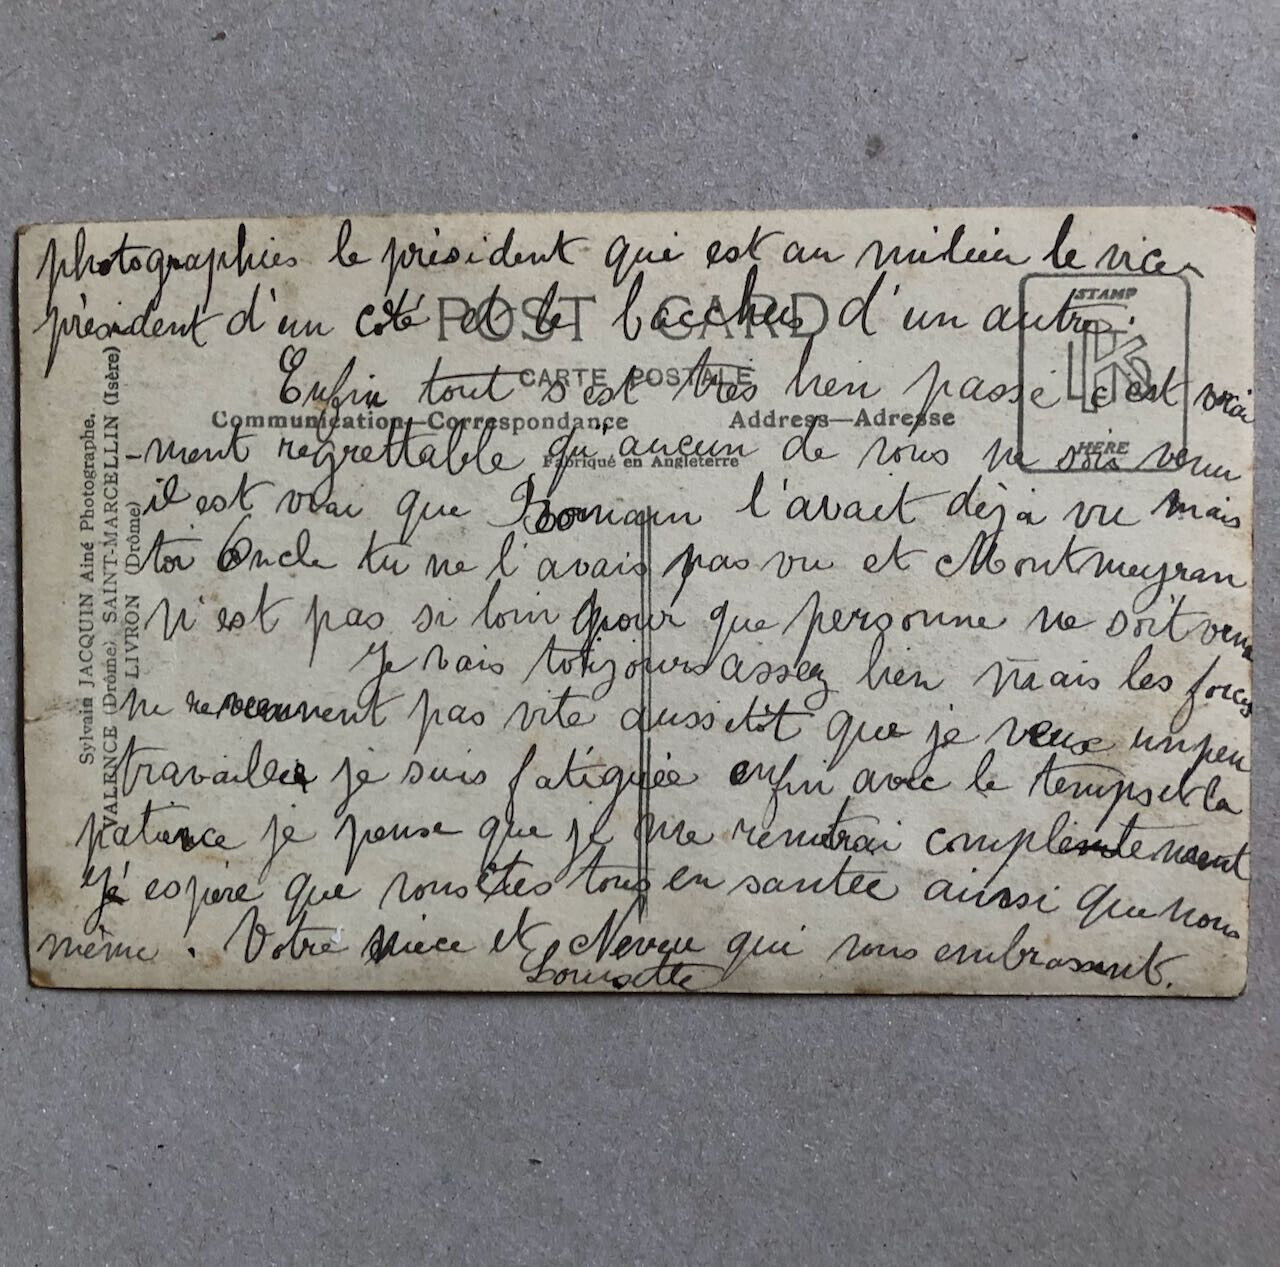 photographies le président qui est au milieu le vice
président d'un coté et le bacchus d'un autre.
POST CARD
STAMP
K
HERE
CARTE POSTALE
Enfin tout s'est très bien passé c'est vrai
Communication—Correspondance
Address—Adresse
-ment regrettable qu'aucun de vous ne sois venu
Fabriqué en Angleterre
il est vrai que Romain l'avait déja vu mais
toi Oncle tu ne l'avais pas vu et Montmeyran
n'est pas si loin pour que personne ne soit venu
Je vais toujours assez bien mais les forces
ne reviennent pas vite aussitôt que je veux un peu
travailler je suis fatiguée enfin avec le temps et la
patience je pense que je me remetrai complètement
J'éspère que vous êtes tous en santée ainsi que nous
même. Votre nièce et Neveu qui vous embrassent.
Louisette
Sylvain JACQUIN Aîné Photographe.
VALENCE (Drôme), SAINT-MARCELLIN (Isère)
LIVRON (Drôme)